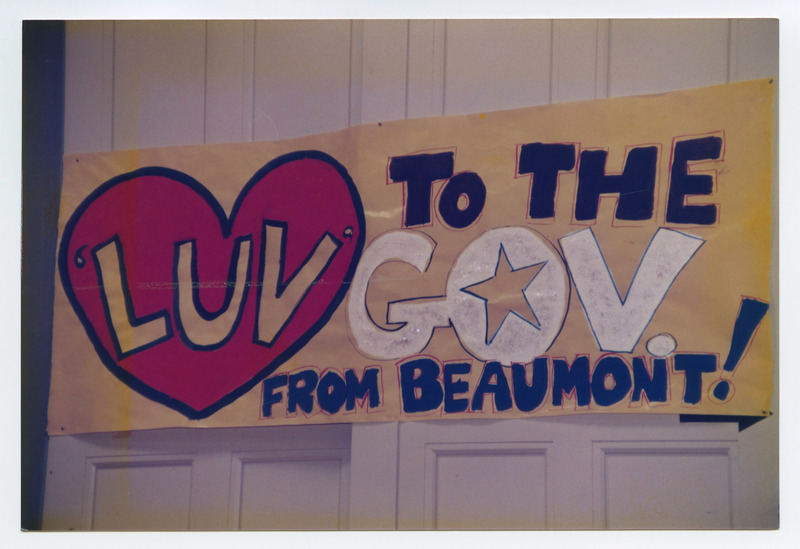 'LUV' TO THE
GOV.
FROM BEAUMONT!